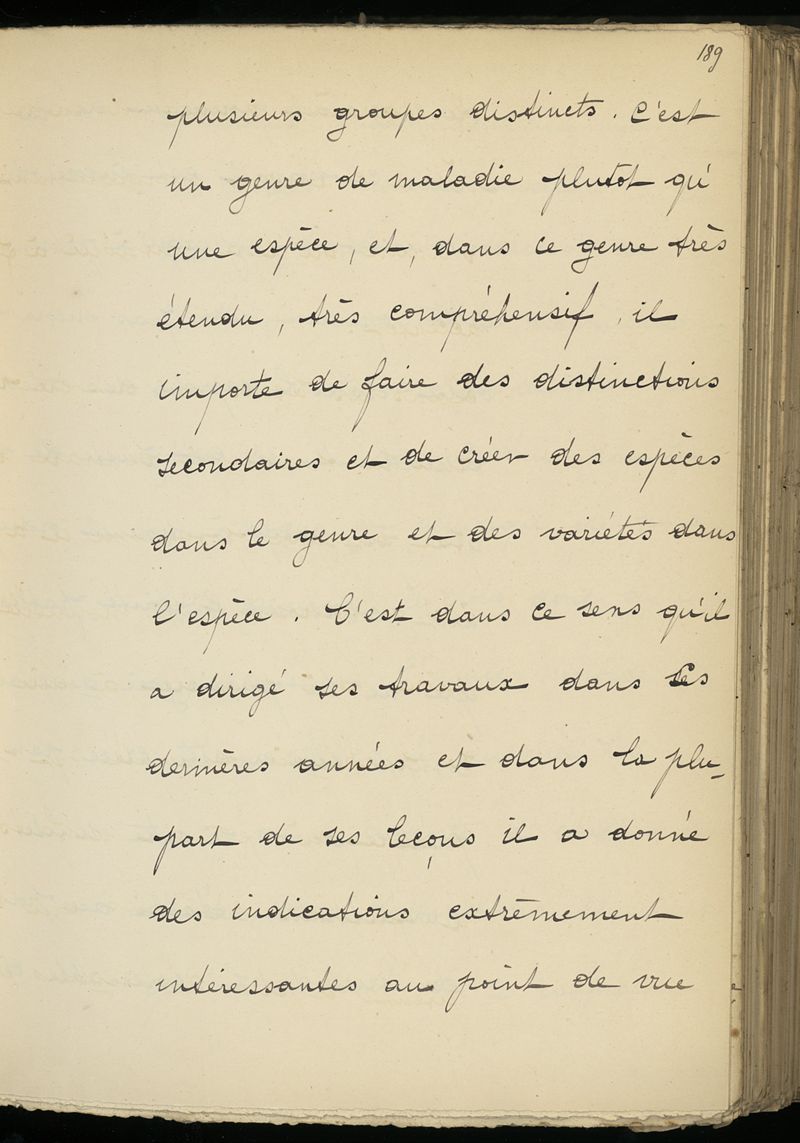 189
plusieurs groupes distincts. C'est
un genre de maladie plutôt qu'
une espèce, et, dans ce genre très
étendu, très compréhensif, il
importe de faire des distinctions
secondaires et de créer des espèces
dans le genre et des variétés dans
l'espèce. C'est dans ce sens qu'il
a dirigé ses travaux dans ses
dernières années et dans la plu-
part de ses leçons il a donné
des indications extrêmement
intéressantes au point de vue